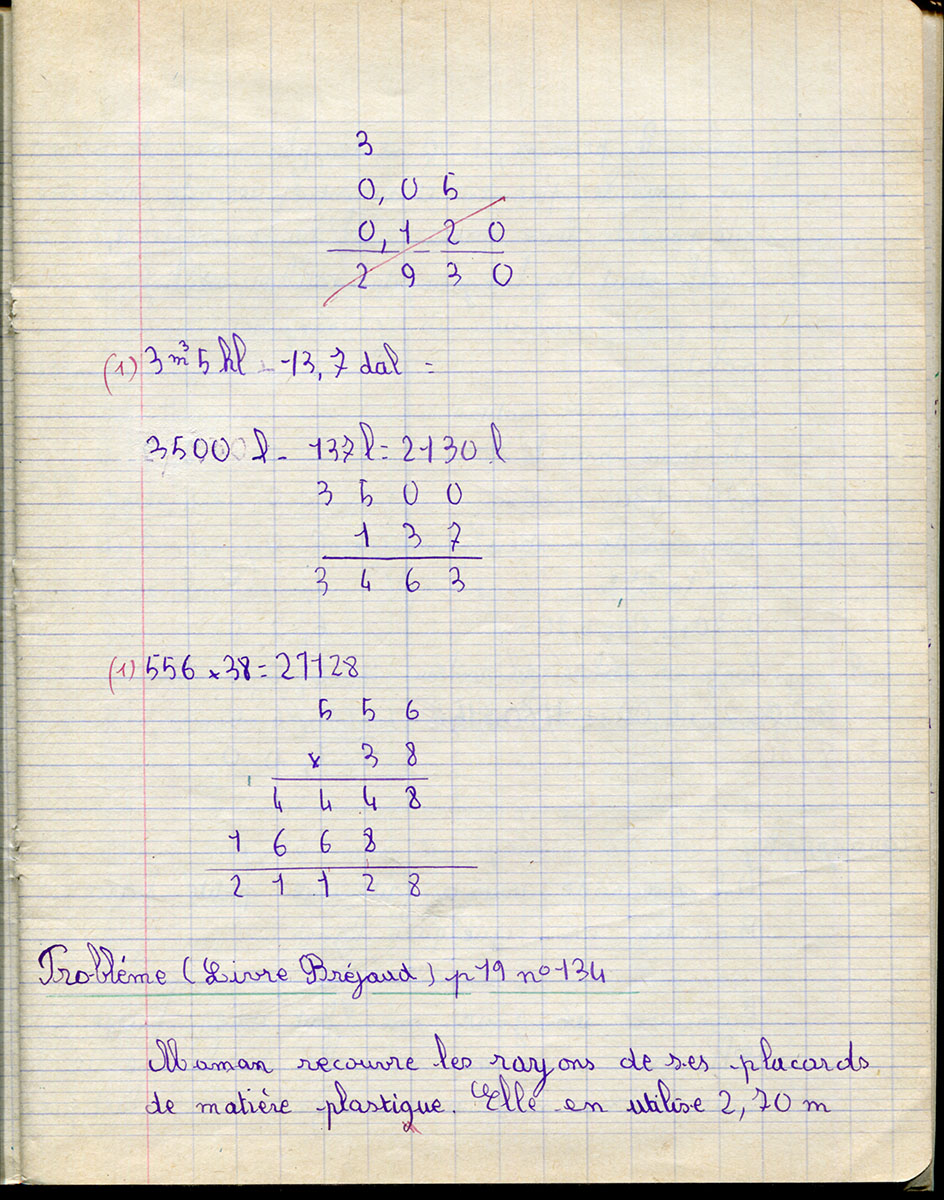 3
0,05
0,120
2930
(1) 3 m³ 5 hl - 13,7 dal =
3500 l - 137 l = 2130 l
3500
137
3463
(1) 556 x 38 = 21128
556
x 38
4448
1668
21128
Probléme (Livre Bréjaud) p 19 n° 134
Maman recouvre les rayons de ses placards
de matiére plastique. Elle en utilise 2,70 m